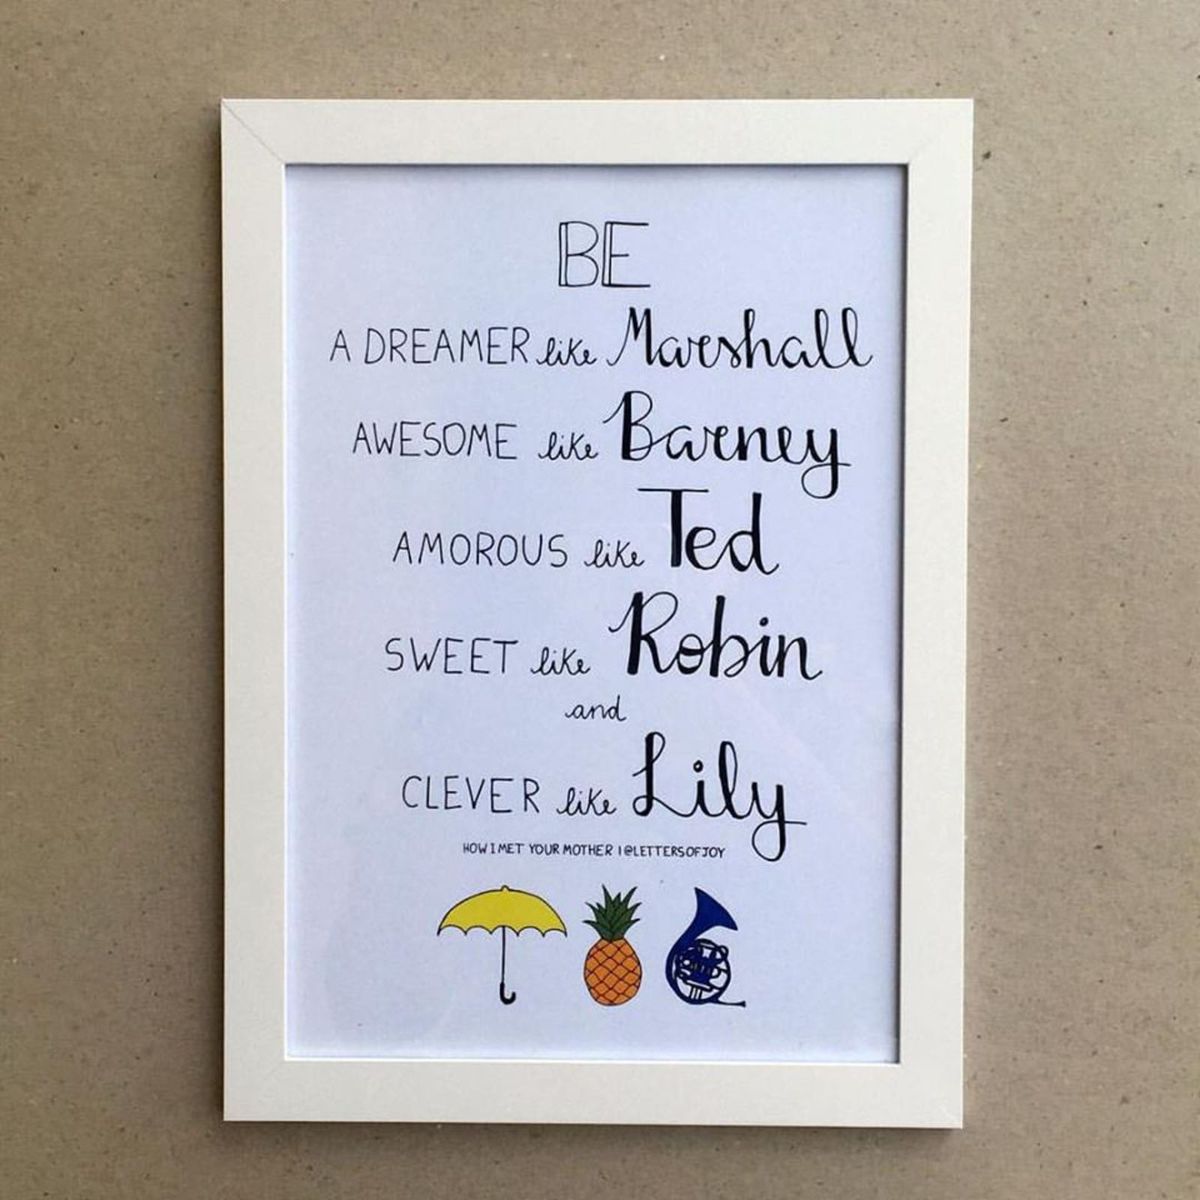 BE
A DREAMER like Marshall
AWESOME like Barney
AMOROUS like Ted
SWEET like Robin
and
CLEVER like Lily
HOW I MET YOUR MOTHER | @LETTERSOFJOY